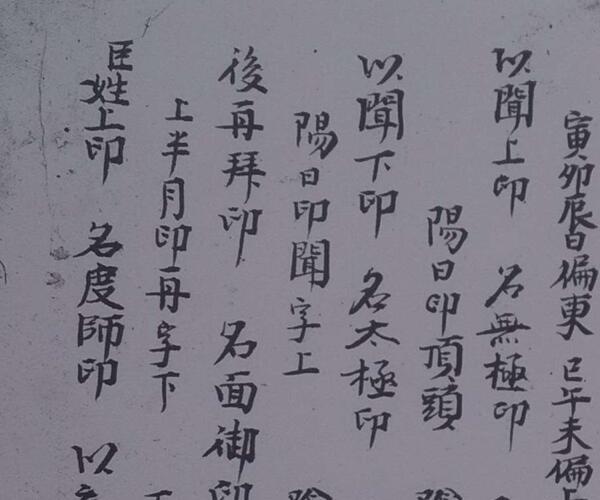 寅卯辰日偏東 巳午未偏
以聞上印 名無極印
陽日印頂頭
以聞下印 名太極印
陽日印聞字上
後再拜印 名面御印
上半月印再字下
臣姓上印 名度師印 以